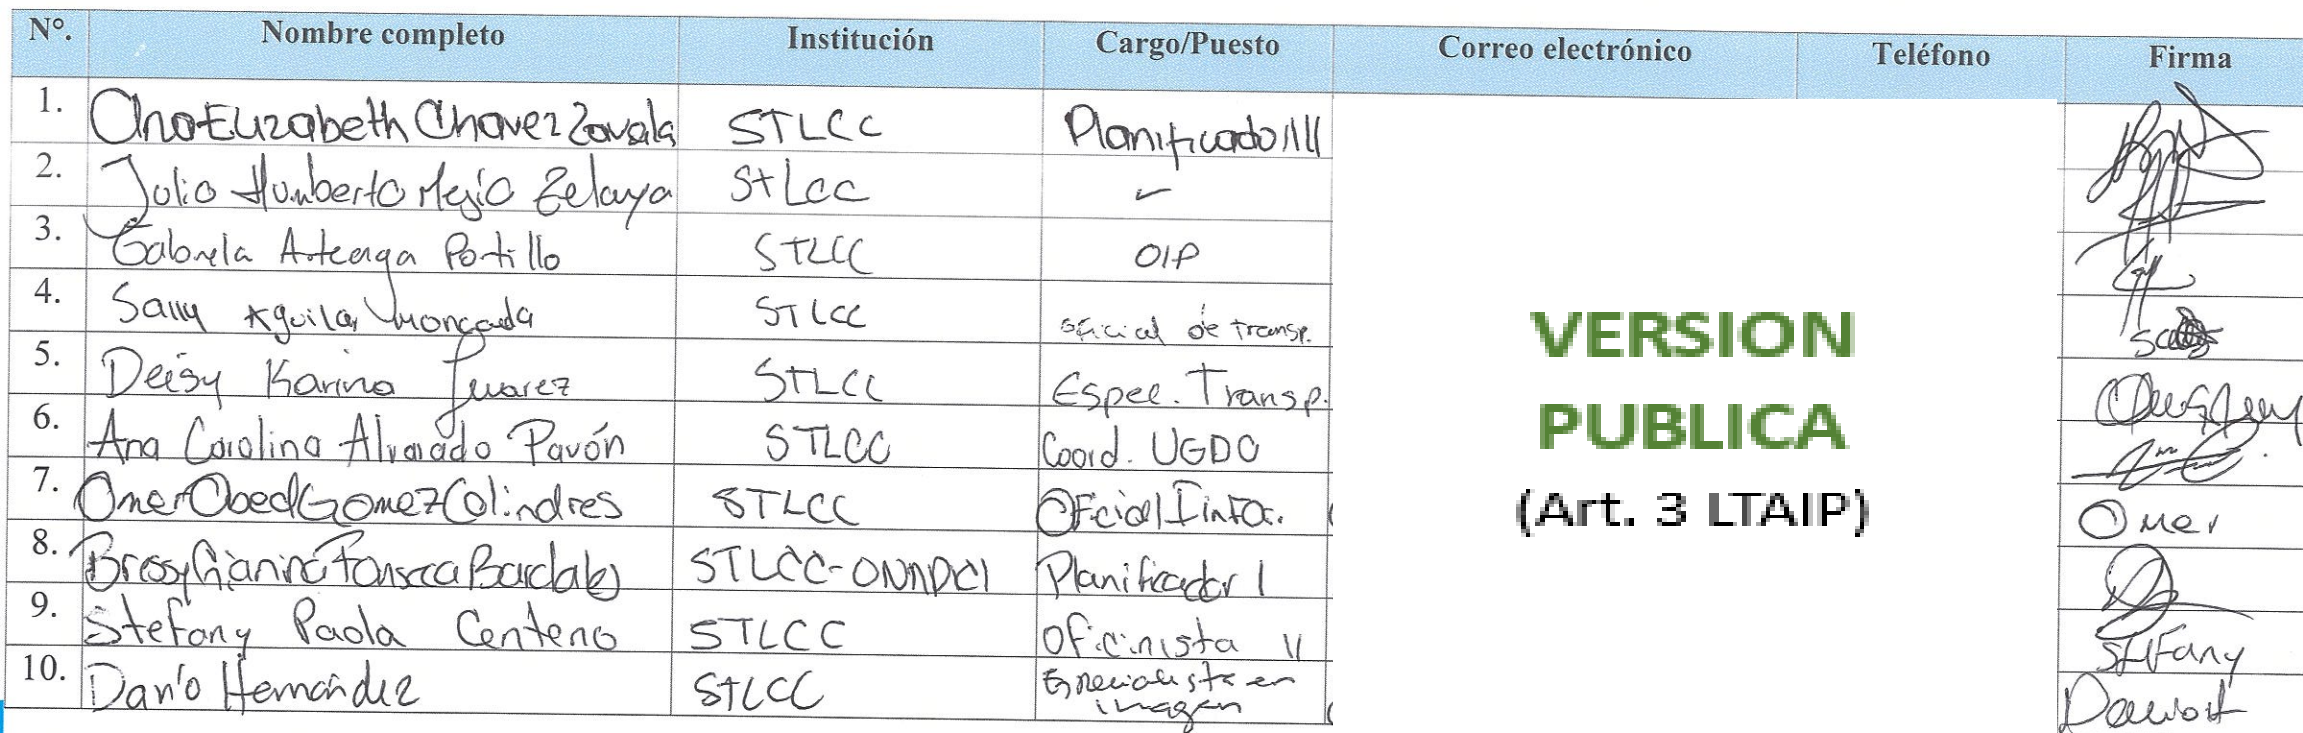 N°. Nombre completo Institución Cargo/Puesto Correo electrónico Teléfono Firma
1. Ana Elizabeth Chavez Zavala STLCC Planificador III
2. Julio Humberto Mejía Zelaya STLCC
3. Gabriela Arteaga Portillo STLCC OIP
4. Sally Aguilar Moncada STLCC oficial de transp.
5. Deisy Karina Juarez STLCC Espec. Transp.
6. Ana Carolina Alvarado Pavón STLCC Coord. UGDO
7. Omer Obed Gomez Colindres STLCC Oficial Infor. Omer
8. Fonseca Bardales STLCC- Planificador I
9. Stefany Paola Centeno STLCC Oficinista II Stefany
10. Darío Hernández STLCC Especialista en imagen
VERSION
PUBLICA
(Art. 3 LTAIP)